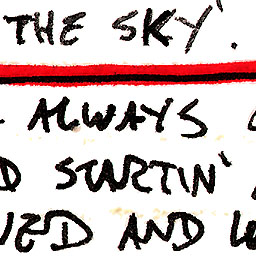 THE SKY'.
ALWAYS
STARTIN'
AND